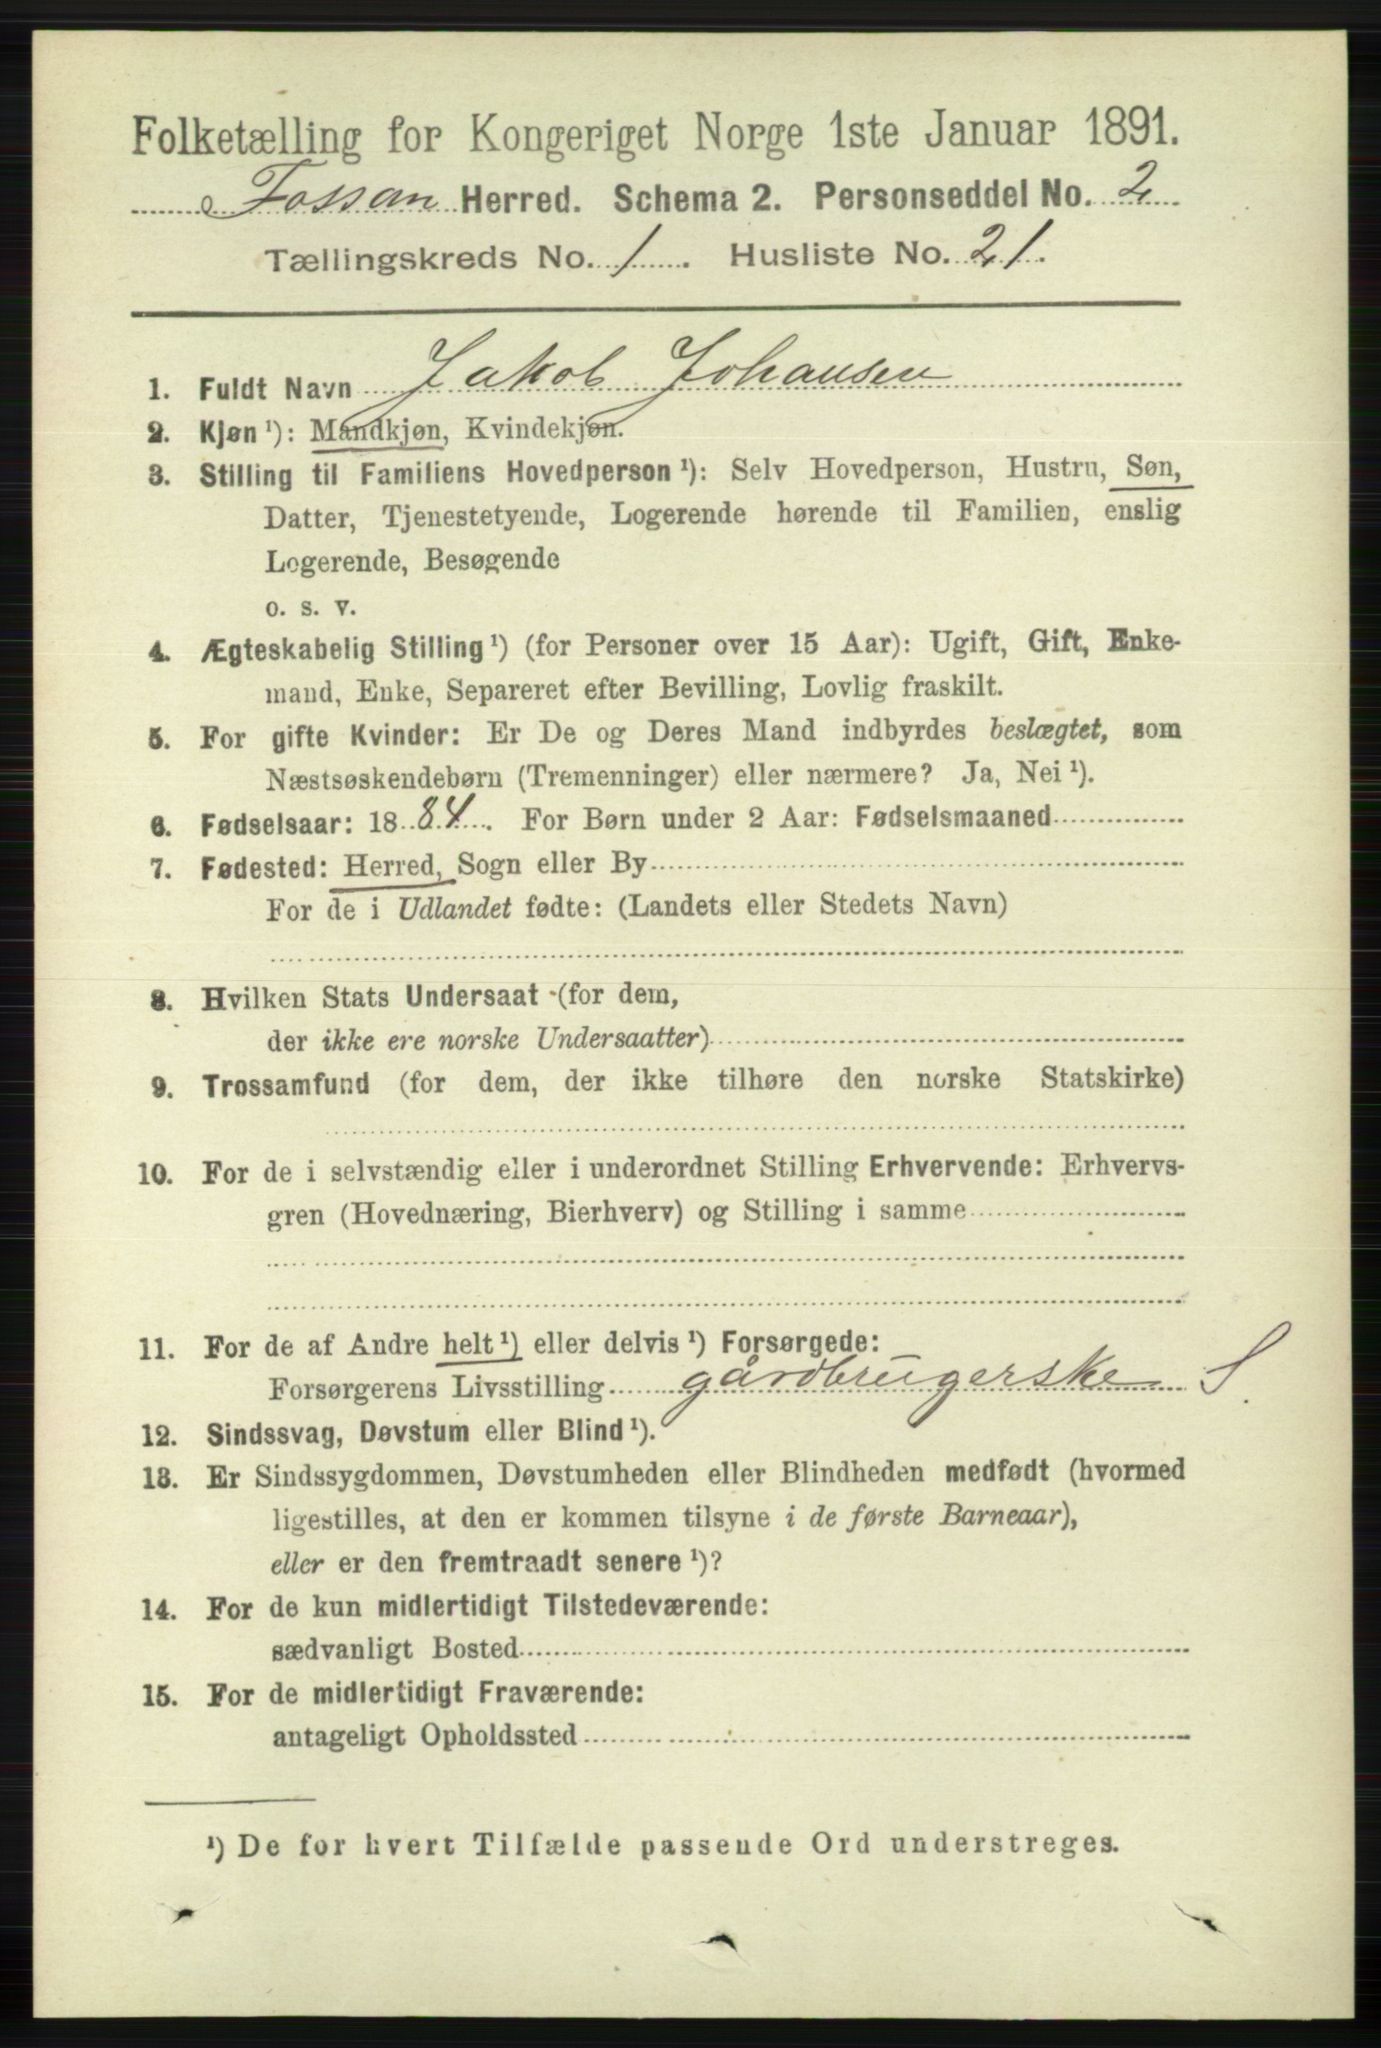 Folketælling for Kongeriget Norge 1ste Januar 1891.
Fossan Herred. Schema 2. Personseddel No. 2
Tællingskreds No. 1. Husliste No. 21.
1. Fuldt Navn Jakob Johansen
2. Kjøn ¹): Mandkjøn, Kvindekjøn.
3. Stilling til Familiens Hovedperson ¹): Selv Hovedperson, Hustru, Søn,
Datter, Tjenestetyende, Logerende hørende til Familien, enslig
Logerende, Besøgende
o. s. v.
4. Ægteskabelig Stilling ¹) (for Personer over 15 Aar): Ugift, Gift, Enke-
mand, Enke, Separeret efter Bevilling, Lovlig fraskilt.
5. For gifte Kvinder: Er De og Deres Mand indbyrdes beslægtet, som
Næstsøskendebørn (Tremenninger) eller nærmere? Ja, Nei ¹).
6. Fødselsaar: 1884. For Børn under 2 Aar: Fødselsmaaned
7. Fødested: Herred, Sogn eller By
For de i Udlandet fødte: (Landets eller Stedets Navn)
8. Hvilken Stats Undersaat (for dem,
der ikke ere norske Undersaatter)
9. Trossamfund (for dem, der ikke tilhøre den norske Statskirke)
10. For de i selvstændig eller i underordnet Stilling Erhvervende: Erhvervs-
gren (Hovednæring, Bierhverv) og Stilling i samme
11. For de af Andre helt ¹) eller delvis ¹) Forsørgede:
Forsørgerens Livsstilling gårdbrugerske S.
12. Sindssvag, Døvstum eller Blind ¹).
13. Er Sindssygdommen, Døvstumheden eller Blindheden medfødt (hvormed
ligestilles, at den er kommen tilsyne i de første Barneaar),
eller er den fremtraadt senere ¹)?
14. For de kun midlertidigt Tilstedeværende:
sædvanligt Bosted
15. For de midlertidigt Fraværende:
antageligt Opholdssted
¹) De for hvert Tilfælde passende Ord understreges.